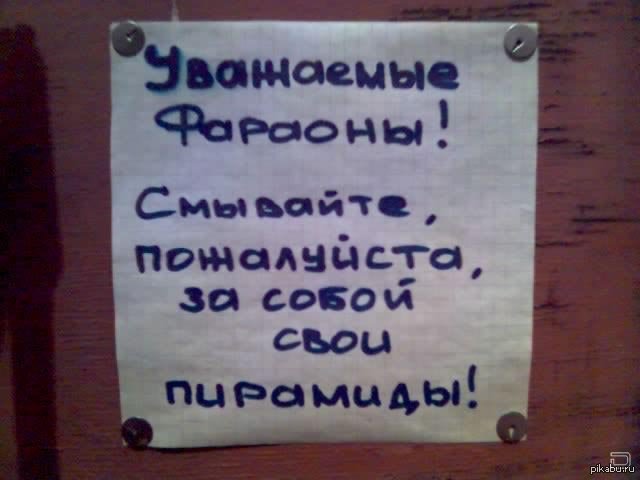 Уважаемые
Фараоны!
Смывайте,
пожалуйста,
за собой
свои
пирамиды!
pikabu.ru